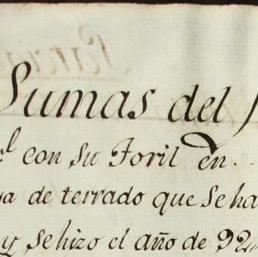 Sumas del
l con su Toril en
a de terrado que se ha
y se hizo el año de 92